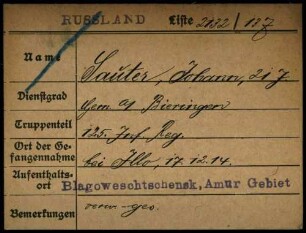 RUSSLAND Liste 2132/137
Name Sauter, Johann, 21 J
Dienstgrad Gem a Bieringen
Truppenteil 125. Inf. Reg.
Ort der Gefangennahme bei Illo, 17.12.14.
Aufenthaltsort Blagoweschtschensk, Amur Gebiet
Bemerkungen verw.-ges.